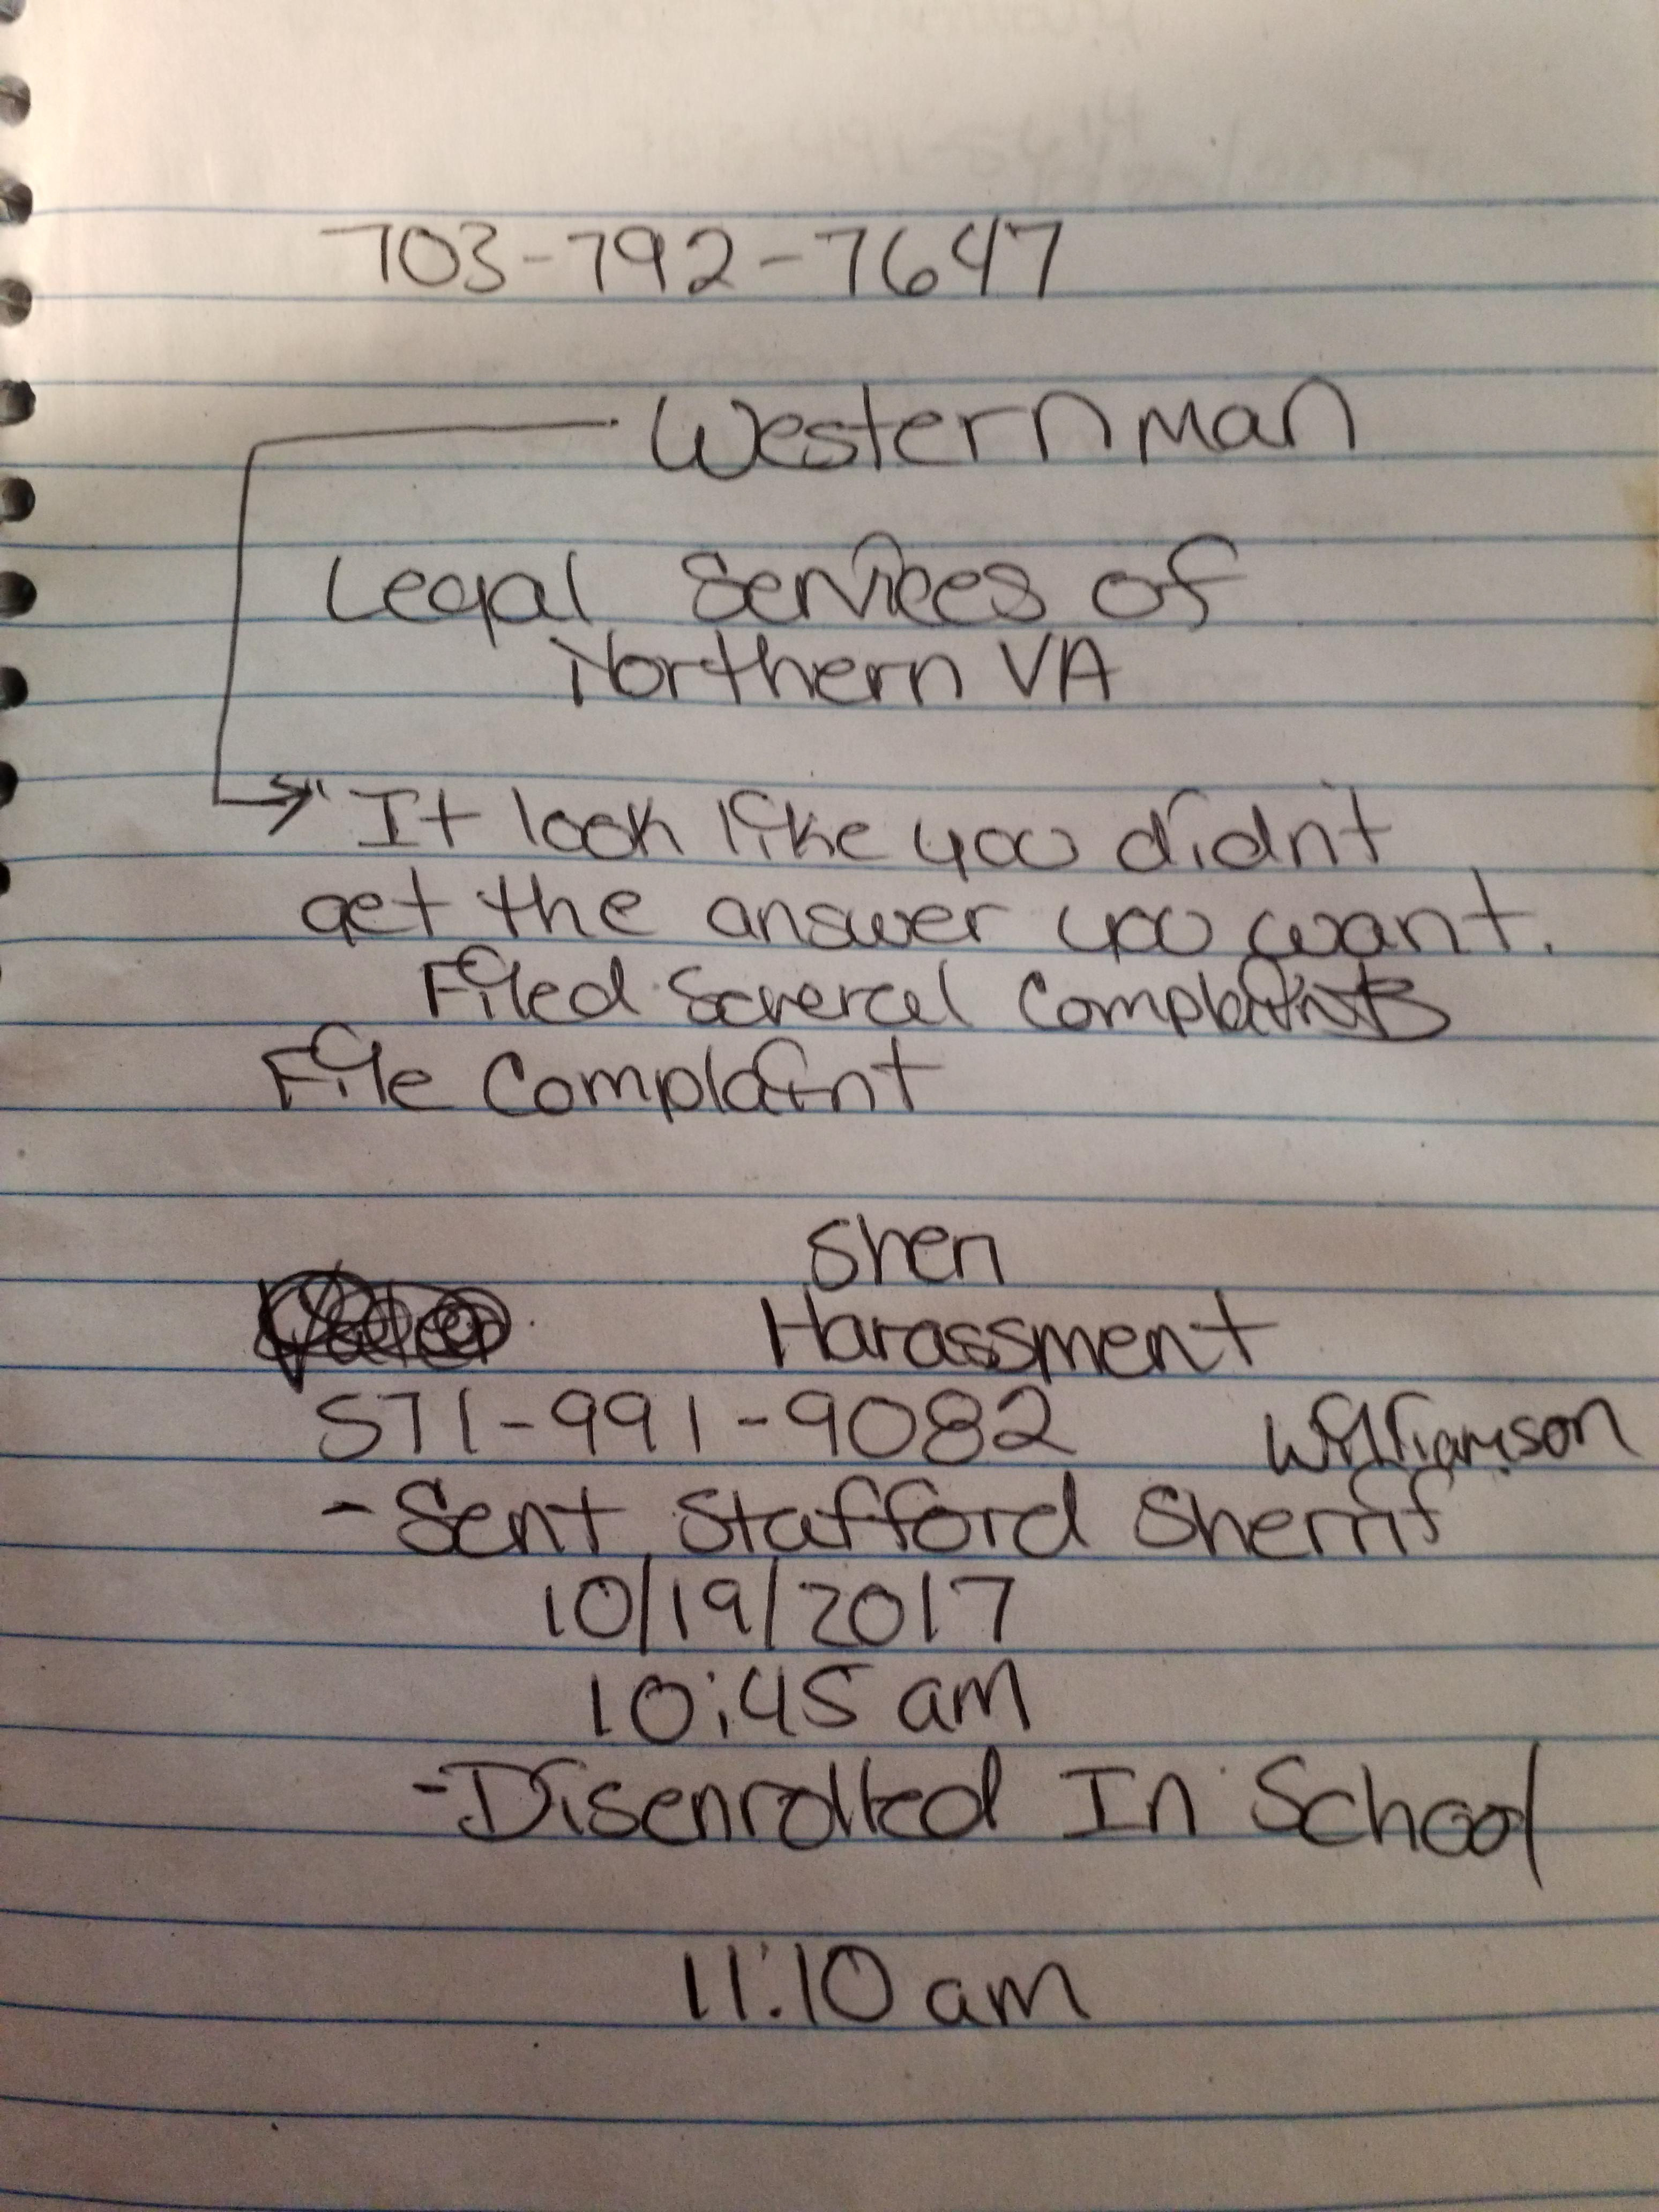 703-792-7647
Westernman
Legal Services of
Northern VA
"It look like you didn't
get the answer you want.
Filed Several Complaints
File Complaint
Shen
Harassment
571-991-9082 Williamson
- Sent Stafford Sherrif
10/19/2017
10:45 am
- Disenrolled In School
11:10 am